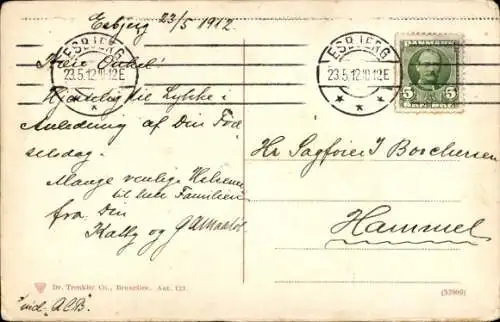 Esbjerg 23/5 1912.
Kære Onkel!
Hjertelig til Lykke i
Anledning af Din Fød
selsdag.
Mange venlige Hilsener
til hele Familien
fra Din
Kathy og
"ind. A.C.B."
ESBJERG
23.5.12 10-12E
ESBJERG
23.5.12 10-12E
DANMARK
5 5
Hr Sagfører J Borchersen
Hammel
Dr. Trenkler Co., Bruxelles. Ant. 123.